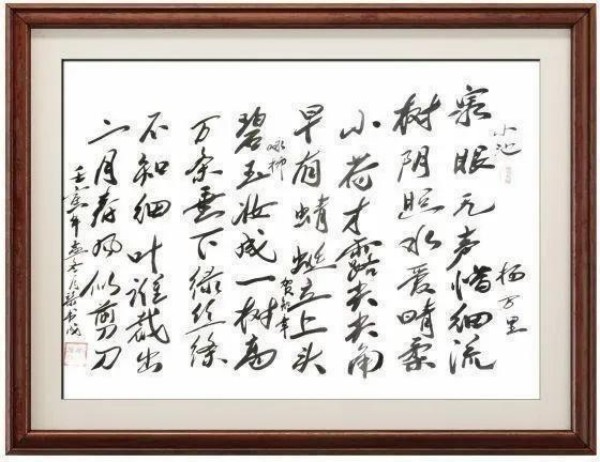 小池
杨万里
泉眼无声惜细流
树阴照水爱晴柔
小荷才露尖尖角
早有蜻蜓立上头
咏柳
贺知章
碧玉妆成一树高
万条垂下绿丝绦
不知细叶谁裁出
二月春风似剪刀